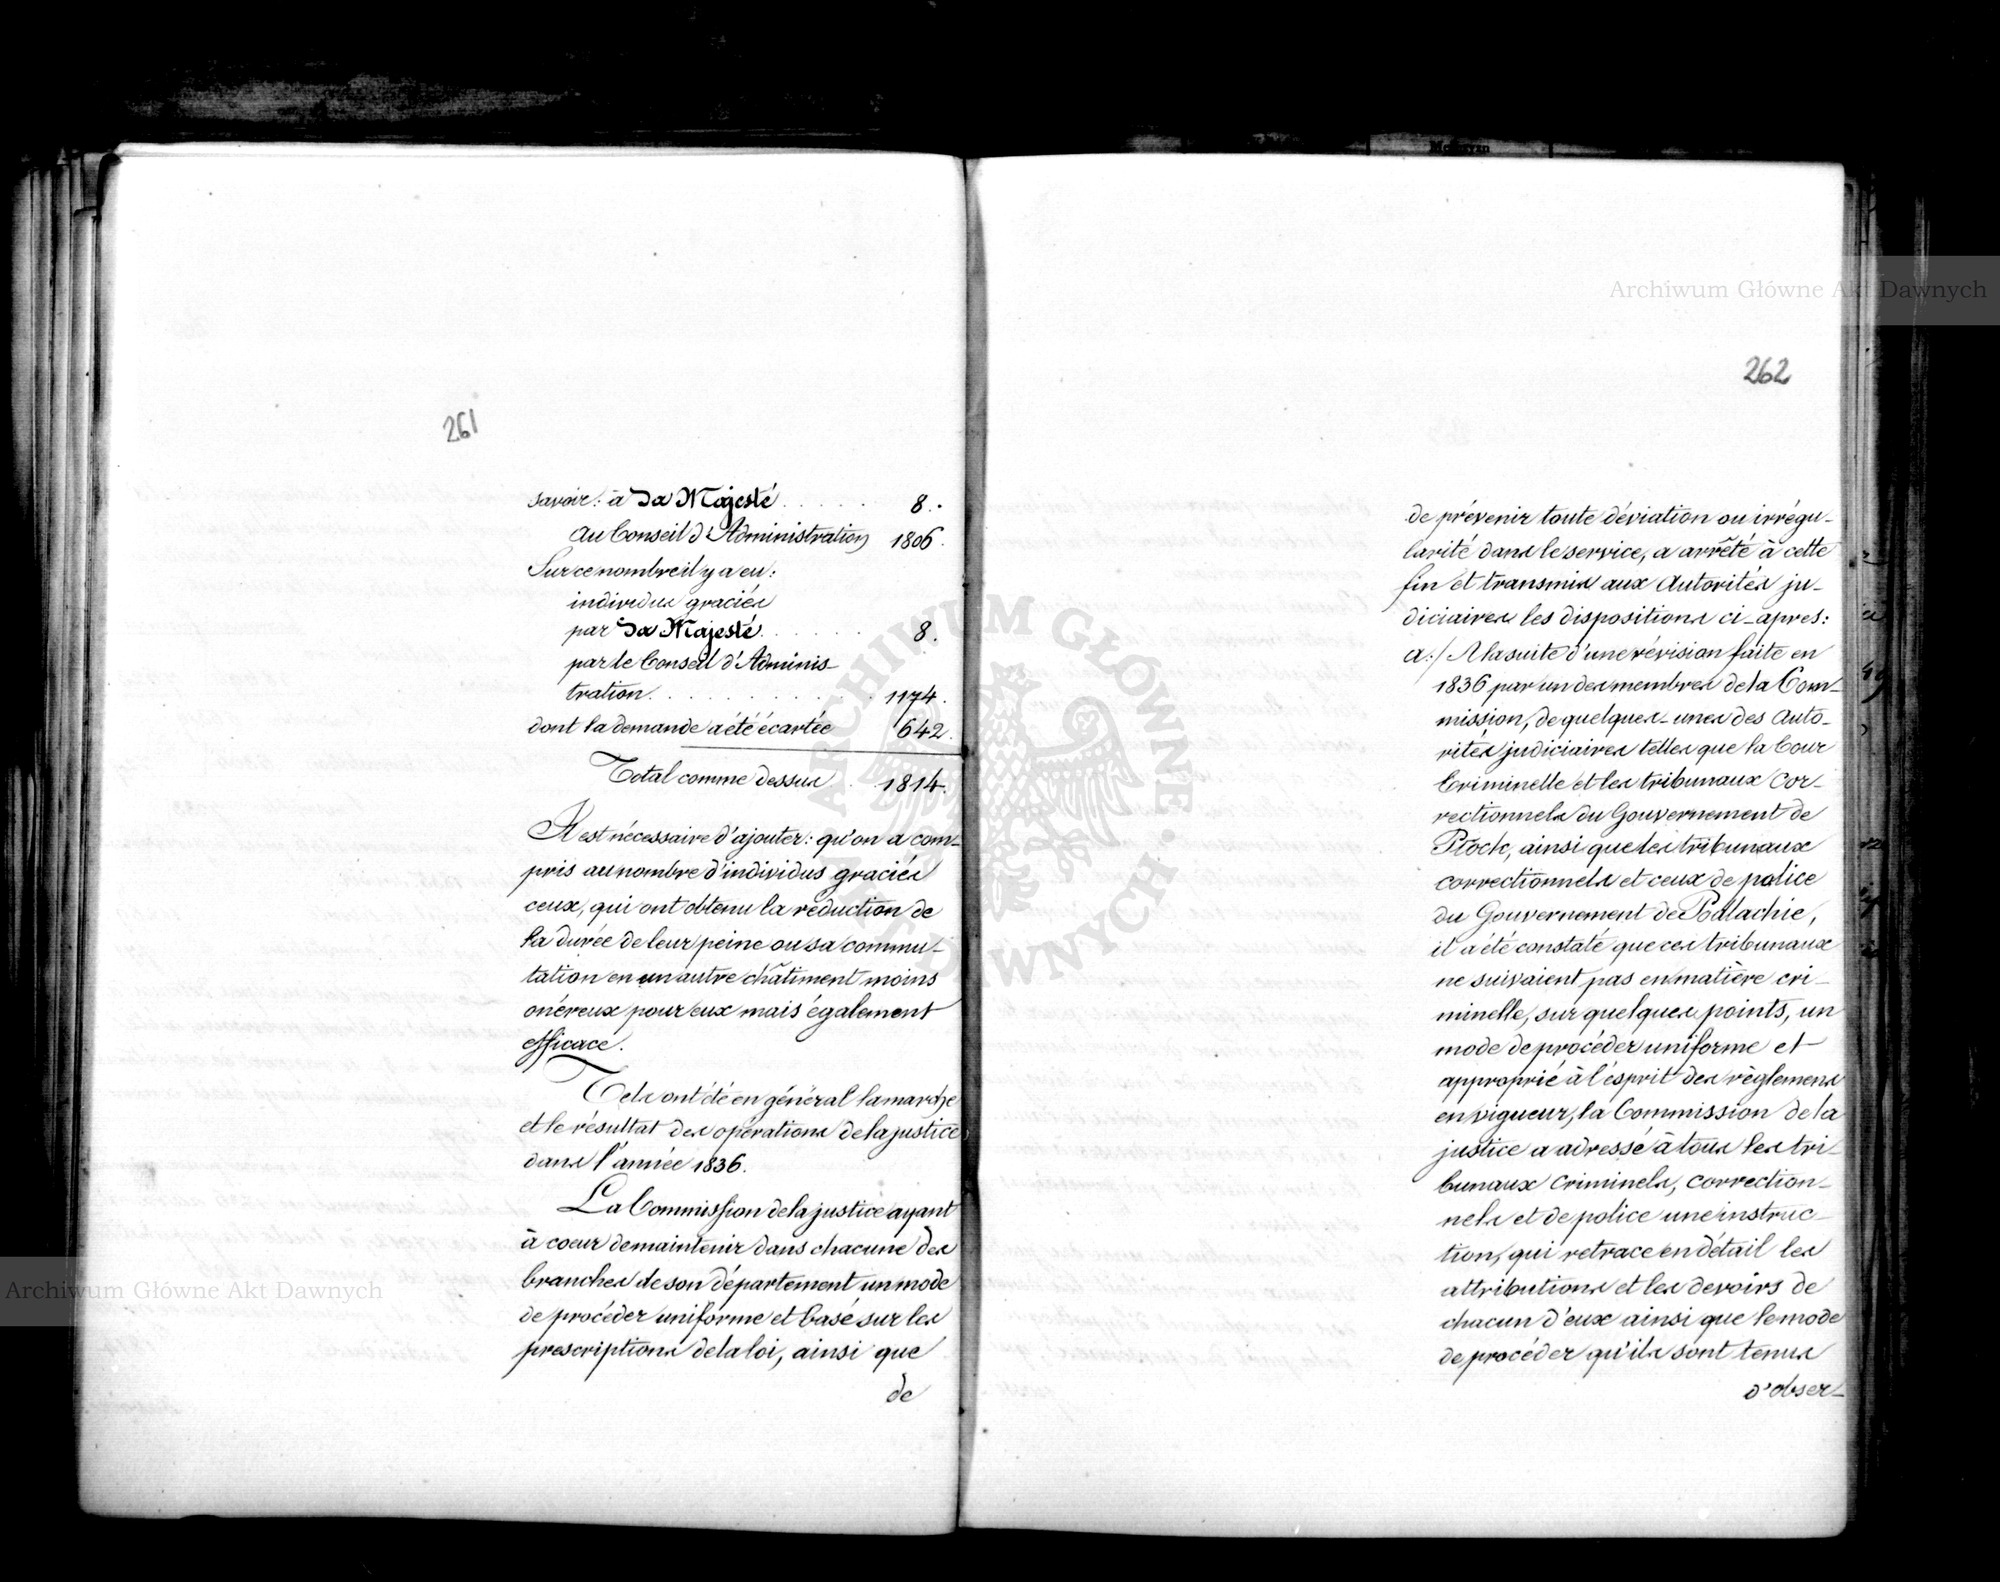 261
savoir: à Sa Majesté . . . . . 8. .
au Conseil d'Administration 1806.
Sur ce nombre il y a eu:
individus graciés
par Sa Majesté . . . . . . 8.
par le Conseil d'Adminis-
tration . . . . . . . . . . . 1174.
dont la demande a été écartée 642.
Total comme dessus . . 1814.
Il est nécessaire d'ajouter: qu'on a com-
pris au nombre d'individus graciés
ceux, qui ont obtenu la réduction de
la durée de leur peine ou sa commu-
tation en un autre châtiment moins
onéreux pour eux mais également
efficace.
Tels ont été en général la marche
et le résultat des opérations de la justice
dans l'année 1836.
La Commission de la justice ayant
à coeur de maintenir dans chacune des
branches de son département un mode
de procéder uniforme et basé sur les
prescriptions de la loi, ainsi que
de
262
de prévenir toute déviation ou irrégu-
larité dans le service, a arrêté à cette
fin et transmis aux Autorités ju-
diciaires les dispositions ci-apres:
a:/ A la suite d'une révision faite en
1836 par un des membres de la Com-
mission, de quelques-unes des Auto-
rités judiciaires telles que la Cour
Criminelle et les tribunaux cor-
rectionnels du Gouvernement de
Płock, ainsi que les tribunaux
correctionnels et ceux de police
du Gouvernement de Podlachie,
il a été constaté que ces tribunaux
ne suivaient pas en matière cri-
minelle, sur quelques points, un
mode de procéder uniforme et
approprié à l'ésprit des règlemens
en vigueur, la Commission de la
justice a adressé à tous les tri-
bunaux Criminels, correction-
nels et de police une instruc-
tion, qui retrace en détail les
attributions et les devoirs de
chacun d'eux ainsi que le mode
de procéder qu'ils sont tenus
d'obser-
Archiwum Główne Akt Dawnych
Archiwum Główne Akt Dawnych